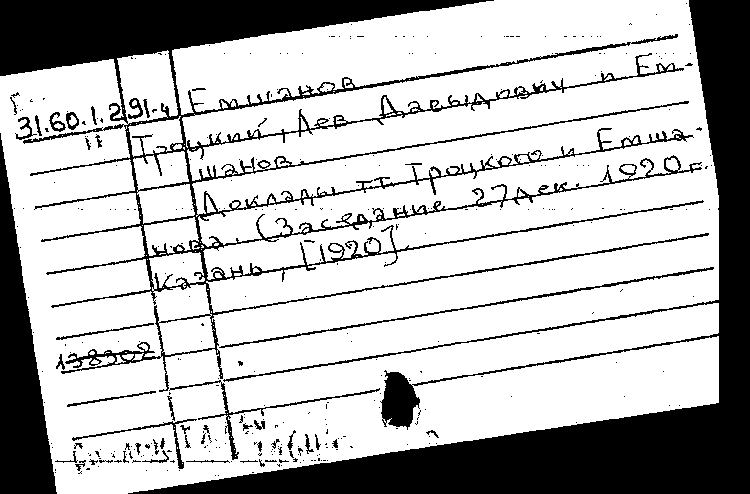 31.60.1.291-4 Емшанов
II Троцкий, Лев Давыдович и Ем-
шанов.
Доклады тт. Троцкого и Емша-
нова. (Заседание 27 дек. 1920 г.
Казань, [1920].
138302